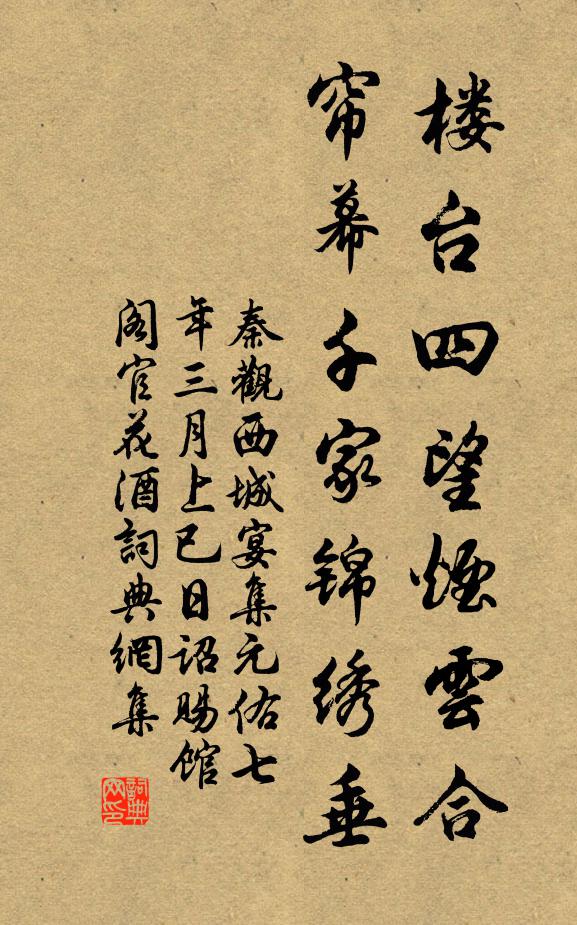 楼台四望煙雲合
帘幕千家锦绣垂
秦觀西城宴集元佑七
年三月上巳日诏赐館
阁官花酒詞典網集
詞典网印